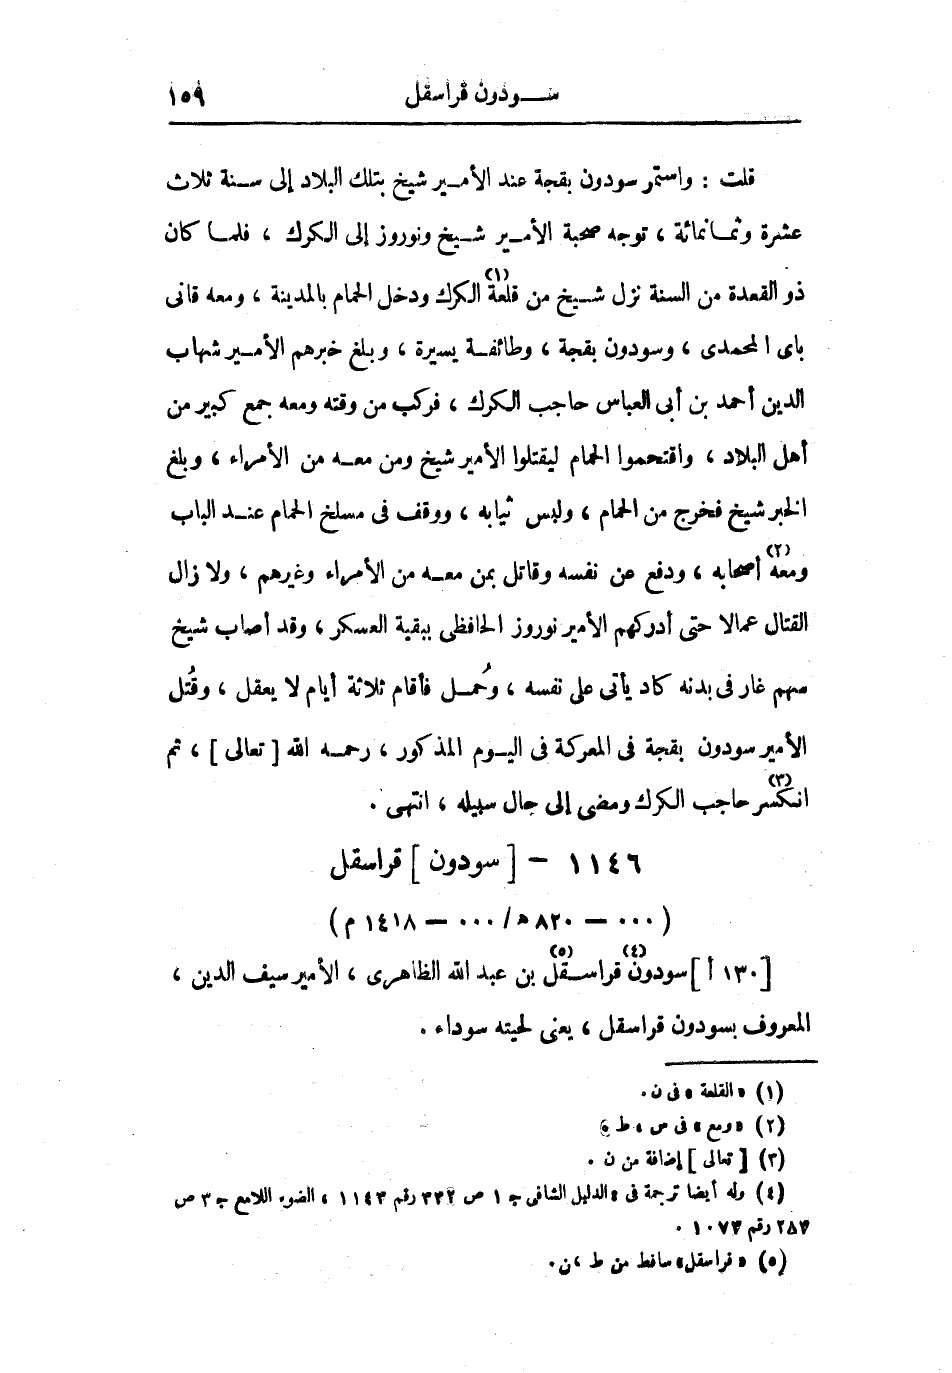 سودون قراسقل ١٥٩
قلت : واستمر سودون بقجة عند الأمير شيخ بتلك البلاد إلى سنة ثلاث
عشرة وثمانمائة ، توجه صحبة الأمير شيخ ونوروز إلى الكرك ، فلما كان
ذو القعدة من السنة نزل شيخ من قلعة (١) الكرك ودخل الحمام بالمدينة ، ومعه قانى
باى المحمدى ، وسودون بقجة ، وطائفة يسيرة ، وبلغ خبرهم الأمير شهاب
الدين أحمد بن أبى العباس حاجب الكرك ، فركب من وقته ومعه جمع كبير من
أهل البلاد ، واقتحموا الحمام ليقتلوا الأمير شيخ ومن معه من الأمراء ، وبلغ
الخبر شيخ فخرج من الحمام ، ولبس ثيابه ، ووقف فى مسلخ الحمام عند الباب
ومعه (٢) أصحابه ، ودفع عن نفسه وقاتل بمن معه من الأمراء وغيرهم ، ولا زال
القتال عمالا حتى أدركهم الأمير نوروز الحافظى ببقية العسكر ، وقد أصاب شيخ
سهم غار فى بدنه كاد يأتى على نفسه ، وحُمل فأقام ثلاثة أيام لا يعقل ، وقُتل
الأمير سودون بقجة فى المعركة فى اليوم المذكور ، رحمه الله [ تعالى ] ، ثم
انكسر (٣) حاجب الكرك ومضى إلى حال سبيله ، انتهى .
١١٤٦ – [ سودون ] قراسقل
( ٠٠٠ – ٨٢٠ ه‍ / ٠٠٠ – ١٤١٨ م )
[ ١٣٠ أ ] سودون (٤) قراسقل (٥) بن عبد الله الظاهرى ، الأمير سيف الدين ،
المعروف بسودون قراسقل ، يعنى لحيته سوداء .
(١) « القلعة » فى ن .
(٢) « ومع » فى س ، ط ،
(٣) [ تعالى ] إضافة من ن .
(٤) وله أيضا ترجمة فى « الدليل الشافى ج ١ ص ٣٣٢ رقم ١١٤٣ ، الضوء اللامع ج ٣ ص
٢٨٤ رقم ١٠٧٤ .
(٥) « قراسقل » ساقط من ط ، ن .